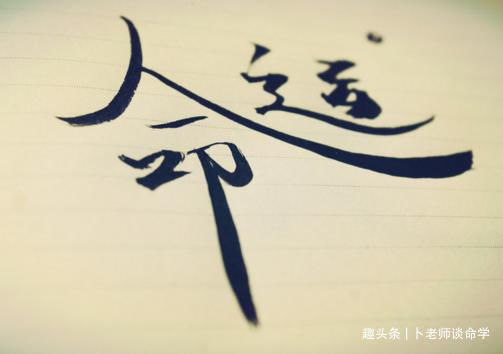 命运
趣头条 | 卜老师谈命学